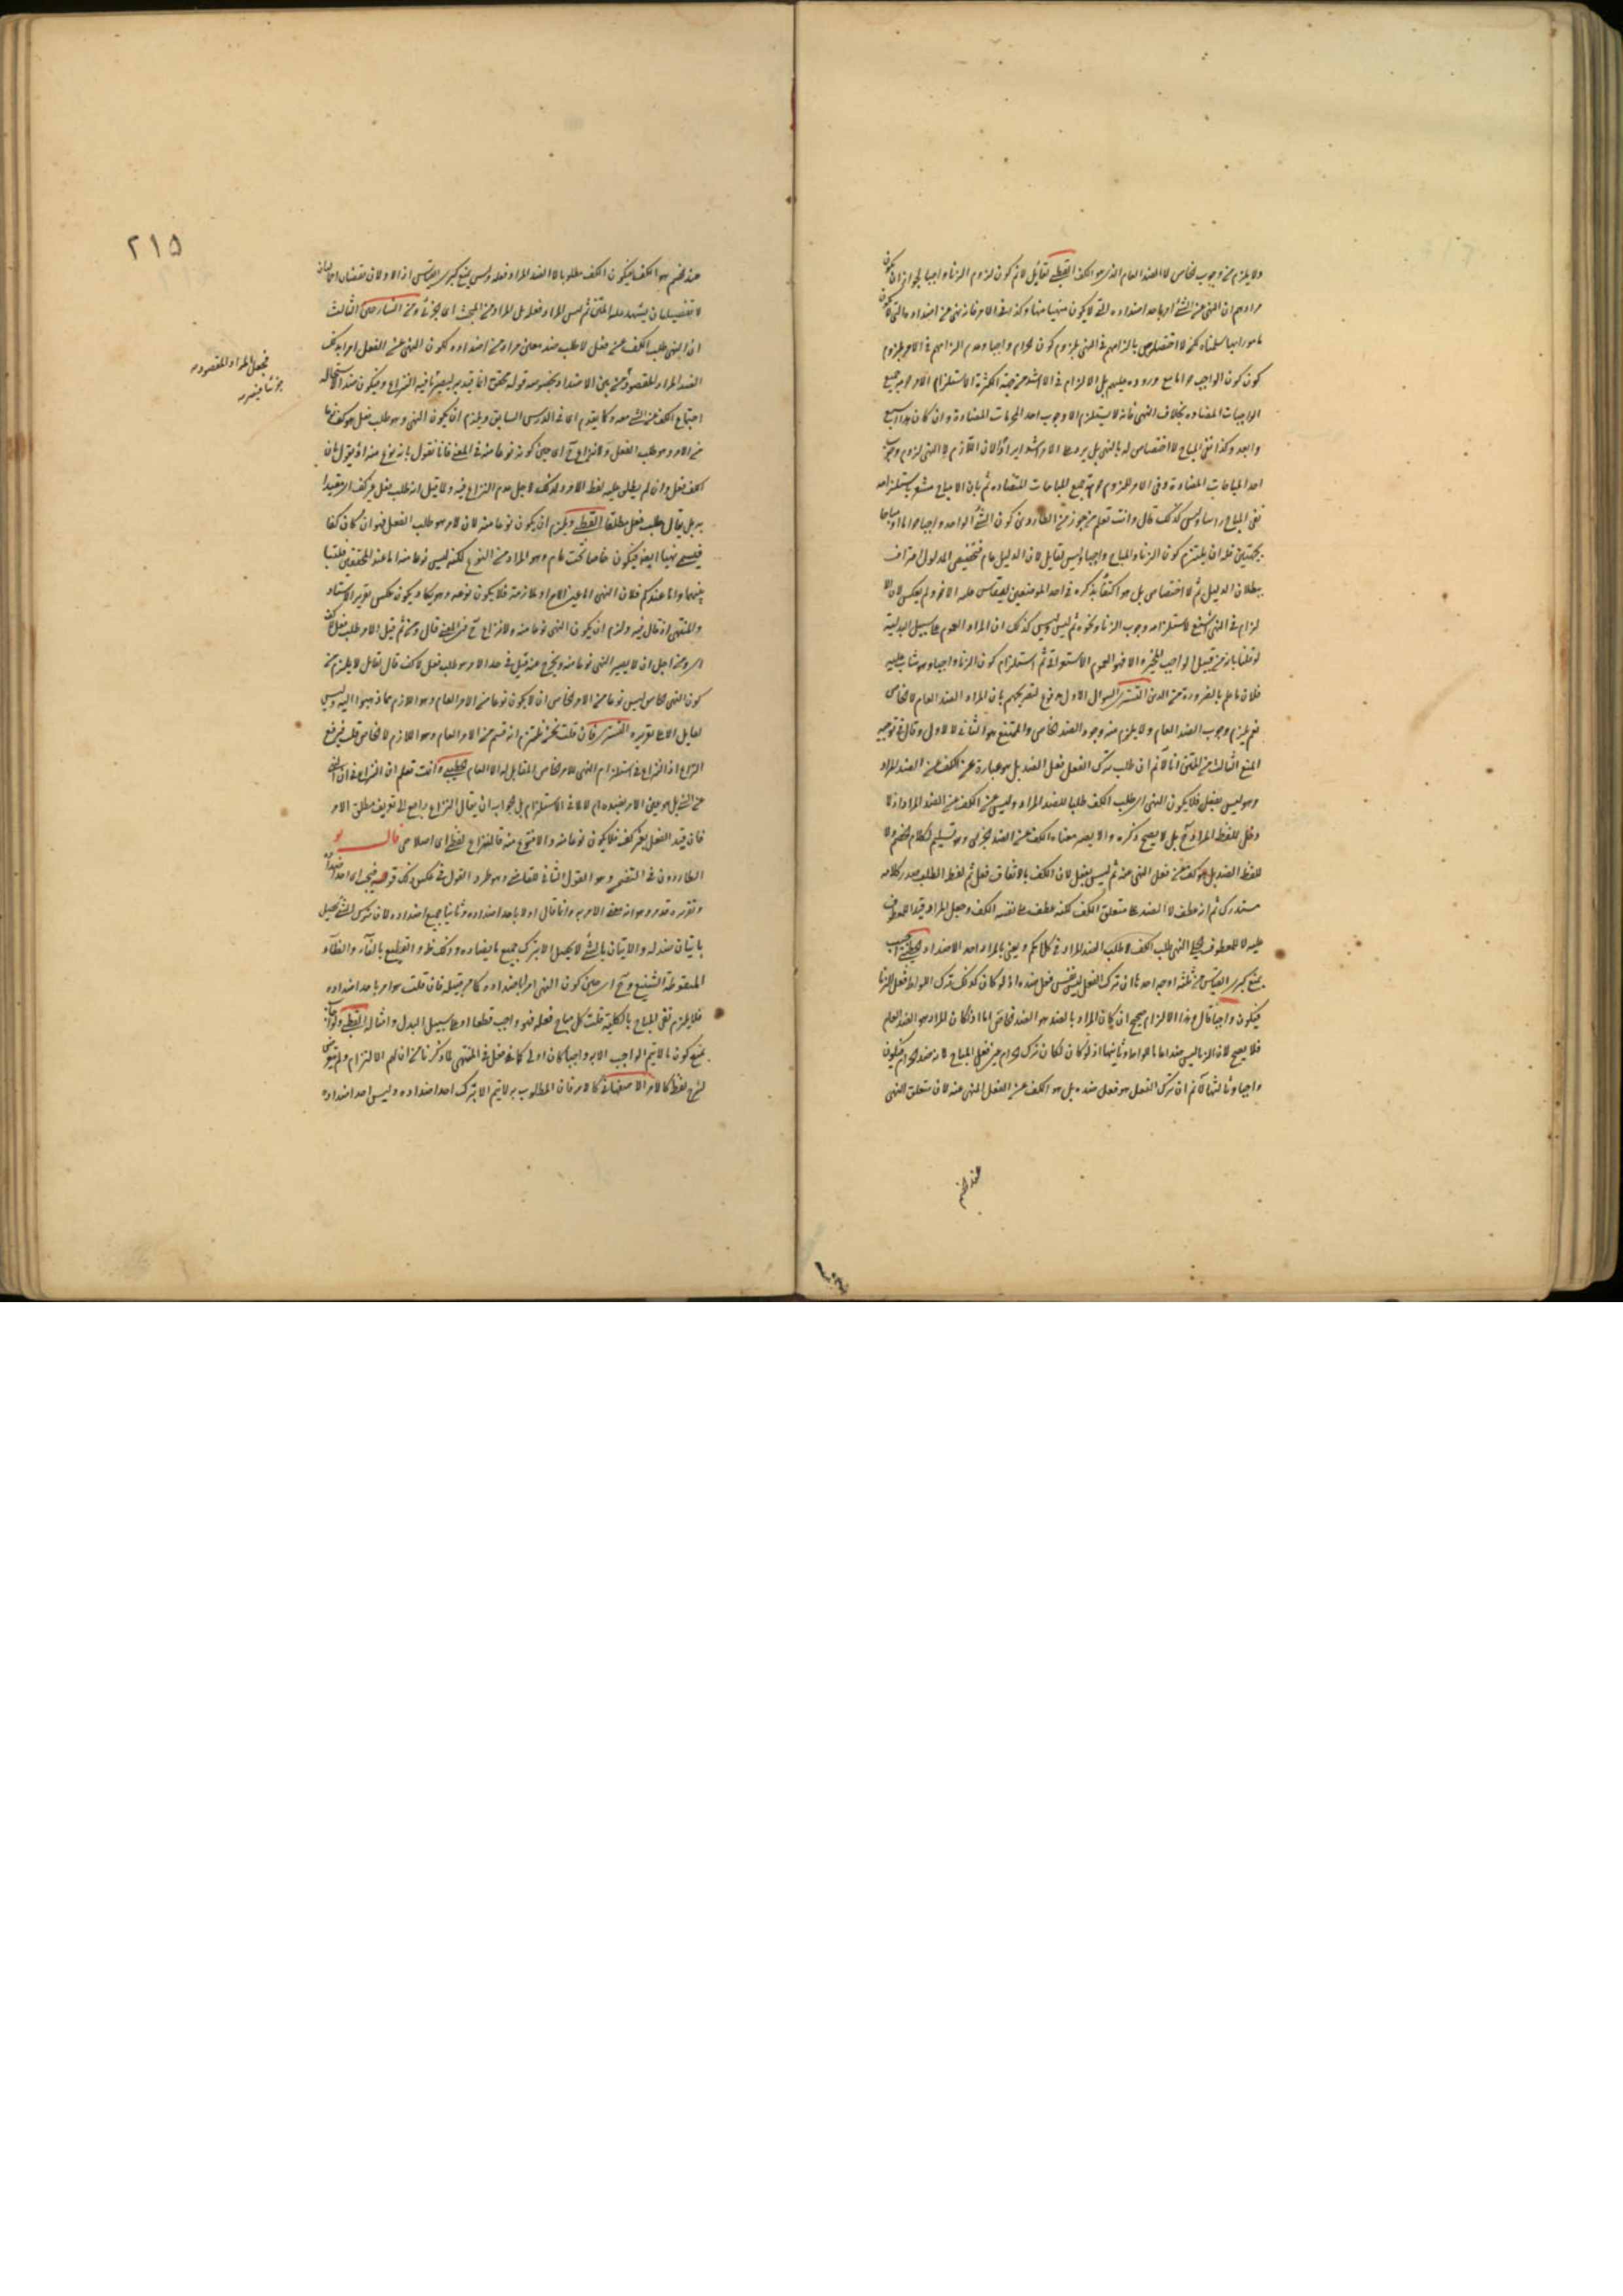 ولا يلزم من وجوب الخاص لا الضد العام الذي هو الكف القطبي لقائل لانم كون لزوم الزنا واجبا لجواز ان يكون
مرادهم ان النهي عن الشيء امر باحد اضداده التي لا يكون منهيا عنها وكذا في الامر فانه نهي عن اضداده التي لا يكون
مامورا بها سلمناه لكن لا اختصاص بالزامهم في النهي بلزوم كون الحرام واجبا وعدم الزامهم في الامر بلزوم
كون الواجب حراما مع وروده عليهم بل الالزام في الامر اشد من جهة الكثرة لاستلزام الامر حرمة جميع
الواجبات المضادة بخلاف النهي فانه لا يستلزم الا وجوب احد المحرمات المضادة وان كان هذا اشنع
وابعد وكذا نفي المباح لا اختصاص له بالنهي بل يرد على الامر اشد ايرادا لان اللازم في النهي لزوم وجوب
احد المباحات المضادة وفي الامر لزوم حرمة جميع المباحات المتضادة ثم بان الاصباح مشعر باستلزامه
نفي المباح راسا وليس كذلك قال وانت تعلم من جوز من الطاردين كون الشيء الواحد واجبا حراما او مباحا
بجهتين فله ان يلتزم كون الزنا والمباح واجبا وليس لقائل لان الدليل عام فتخصيص المدلول اعتراف
ببطلان الدليل ثم لا اختصاص بل هو اكتفا بذكره في احد الموضعين ليقاس عليه الاخر ولم يعكس لان الا
لزام في النهي اشنع لاستلزامه وجوب الزنا ونحوه ثم ليس وليس كذلك ان المراد العموم على سبيل البدلية
لو قلنا بانه من قبيل الواجب المخير والا فهو العموم الاستغراقي ثم استلزام كون الزنا واجبا وهو مثاب عليه
خلاف ما علم بالضرورة من الدين التستري السوال الاول مدفوع لتصريحهم بان المراد الضد العام لا الخاص
نعم يلزم وجوب الضد العام ولا يلزم منه وجود الضد الخاص والممتنع هو الثاني لا الاول وقال في توجيه
المنع الثالث من المتن انا لا نم ان طلب ترك الفعل فعل الضد بل هو عبارة عن الكف عن الضد المراد
وهو ليس بفعل فلا يكون النهي اي طلب الكف طلبا للضد المراد وليس عن الكف عن الضد المراد اذ لا
دخل للفظ المراد ح بل لا يصح ذكره والا يصير معناه الكف عن الضد الجزئي وهو تسليم لكلام الخصم ولا
للفظ الضد بل هو كف عن فعل المنهي عنه ثم ليس بفعل لان الكف بالاتفاق فعل ثم لفظ الطلب صدر كلامه
مستدرك ثم انه عطف لا الضد على متعلق الكف لكنه عطف على نفسه الكف وجعل المراد قيدا للمعطوف
عليه لا للمعطوف النهي طلب الكف لا طلب الضد المراد في كلامكم ويعني بالمراد احد الاضداد الخطيبي اجيب
بمنع كبرى القياس من ثلثة اوجه احدها ان ترك الفعل ليس نفس فعل ضده اذ لو كان كذلك ترك اللواط فعل الزنا
فيكون واجبا قال هذا الالزام صحيح ان كان المراد بالضد هو الضد الخاص اما اذا كان المراد هو الضد العام
فلا يصح لان الزنا ليس ضدا عاما للواط وثانيها اذ لو كان لكان ترك الحرام عين فعل المباح لانه ضد الحرام فيكون
واجبا وثالثها لا نم ان ترك الفعل هو فعل ضده بل هو الكف عن الفعل المنهي عنه لان متعلق النهي
عند الخصم
٢١٥
عند الخصم هو الكف فيكون الكف مطلوبا لا الضد المراد فعله وليس يمنع كبرى القياس
لا تفصيليان يشهد عليه المتن ثم ليس المراد فعله بل المراد من البحث اي الجزئي ومن الشارحين الثالث
ان النهي طلب الكف عن فعل لا طلب ضد معين مراد من اضداده لكون النهي عن الفعل امرا بذلك
الضد المراد المقصود من بين الاضداد بخصوصه قوله
اجتماع الكف عن الشيء معه كما يقدم اي في الدرس السابق ويلزم ان يكون النهي وهو طلب فعل هو كف نوعا
من الامر وهو طلب الفعل ولا نزاع ح اي حين كونه نوعا منه في المعنى فانا نقول بانه نوع منه اذ يقول بان
الكف فعل وان لم يطلق عليه لفظ الامر ولذلك لاجل عدم النزاع فيه ولما قيل انه طلب فعل غير كف اي مقيدا
به بل يقال طلب فعل مطلقا القطبي ويلزم ان يكون نوعا منه لان الامر هو طلب الفعل فهو ان كان كفا
فيسمى نهيا ايضا فيكون خاصا تحت عام وهو المراد من النوع لكنه ليس نوعا منه اما عند المحققين فلتباين
بينهما واما عندكم فلان النهي اما عين الامر او ملازمه فلا يكون نوعه وهو يكاد يكون عكس تقرير الاستاد
والمنتهى اذ قال فيه ولزم ان يكون النهي نوعا منه ولا نزاع ح في المعنى قال ومن ثم قيل الامر طلب فعل لا كف
اي ومن اجل ان لا يصير النهي نوعا منه ويخرج عنه قيل في حد الامر هو طلب فعل لا كف قال لقائل لا يلزم من
كون النهي الخاص ليس نوعا من الامر الخاص ان لا يكون نوعا من الامر العام وهو اللازم مما ذهبوا اليه وليس
لقائل الا على تقريره التستري فان قلت نحن نلتزم انه قسم من الامر العام وهو اللازم لا الخاص قلت فيرتفع
النزاع اذ النزاع في استلزام النهي للامر الخاص المقابل له لا العام الخطيبي وانت تعلم ان النزاع في ان النهي
عن الشيء بل هو عين الامر بضده ام لا لا في الاستلزام بل جوابه ان يقال النزاع راجع الى تعريف مطلق الامر
فان قيد الفعل بغير كف فلا يكون نوعا منه والا فنوع منه فالنزاع لفظي اي اصطلاحي قال
الطاردون في المتضمن وهو القول الثاني للقاضي وهو طرد القول في عكس ذلك
وتقريره قد مر وهو انه
باتيان ضد له والاتيان بالشيء لا يحصل الا بترك جميع ما يضاده وذلك ظ والفظيع بالفاء والظاء
المنقوطة الشنيع وح اي حين كون النهي امرا باضداده كما مر قبيله فان قلت هو امر باحد اضداده
فلا يلزم نفي المباح بالكلية قلت كل مباح فعله فهو واجب قطعا او على سبيل البدل وامثاله القطبي
بمنع كون ما لا يتم الواجب الا به واجبا كان اولى كما فعل في المنتهى لما ذكرنا من ان لهم الالتزام ولم يتعرض
لشرح لفظ كالامر الاصفهاني كالامر فان المطلوب به لا يتم الا بترك احد اضداده وليس احد اضداده
فيجعل المراد المقصود
جزئيا